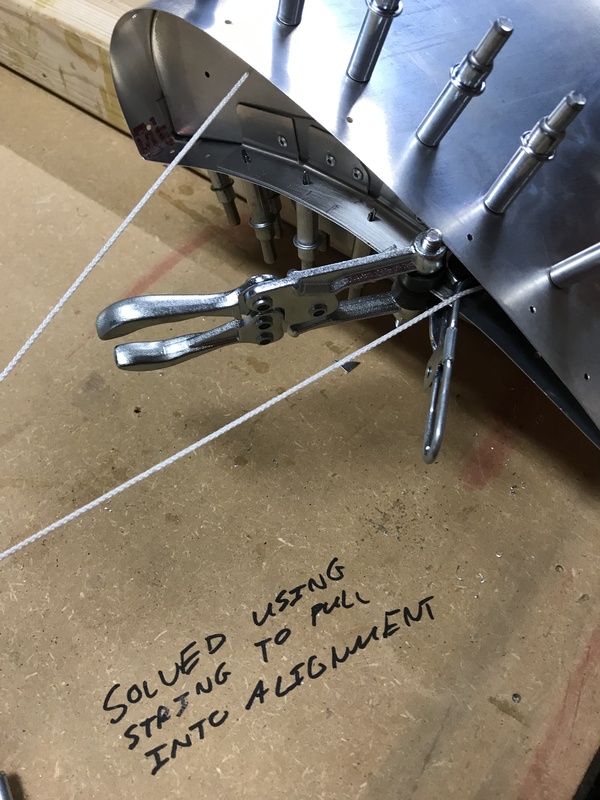 SOLVED USING
STRING TO PULL
INTO ALIGNMENT